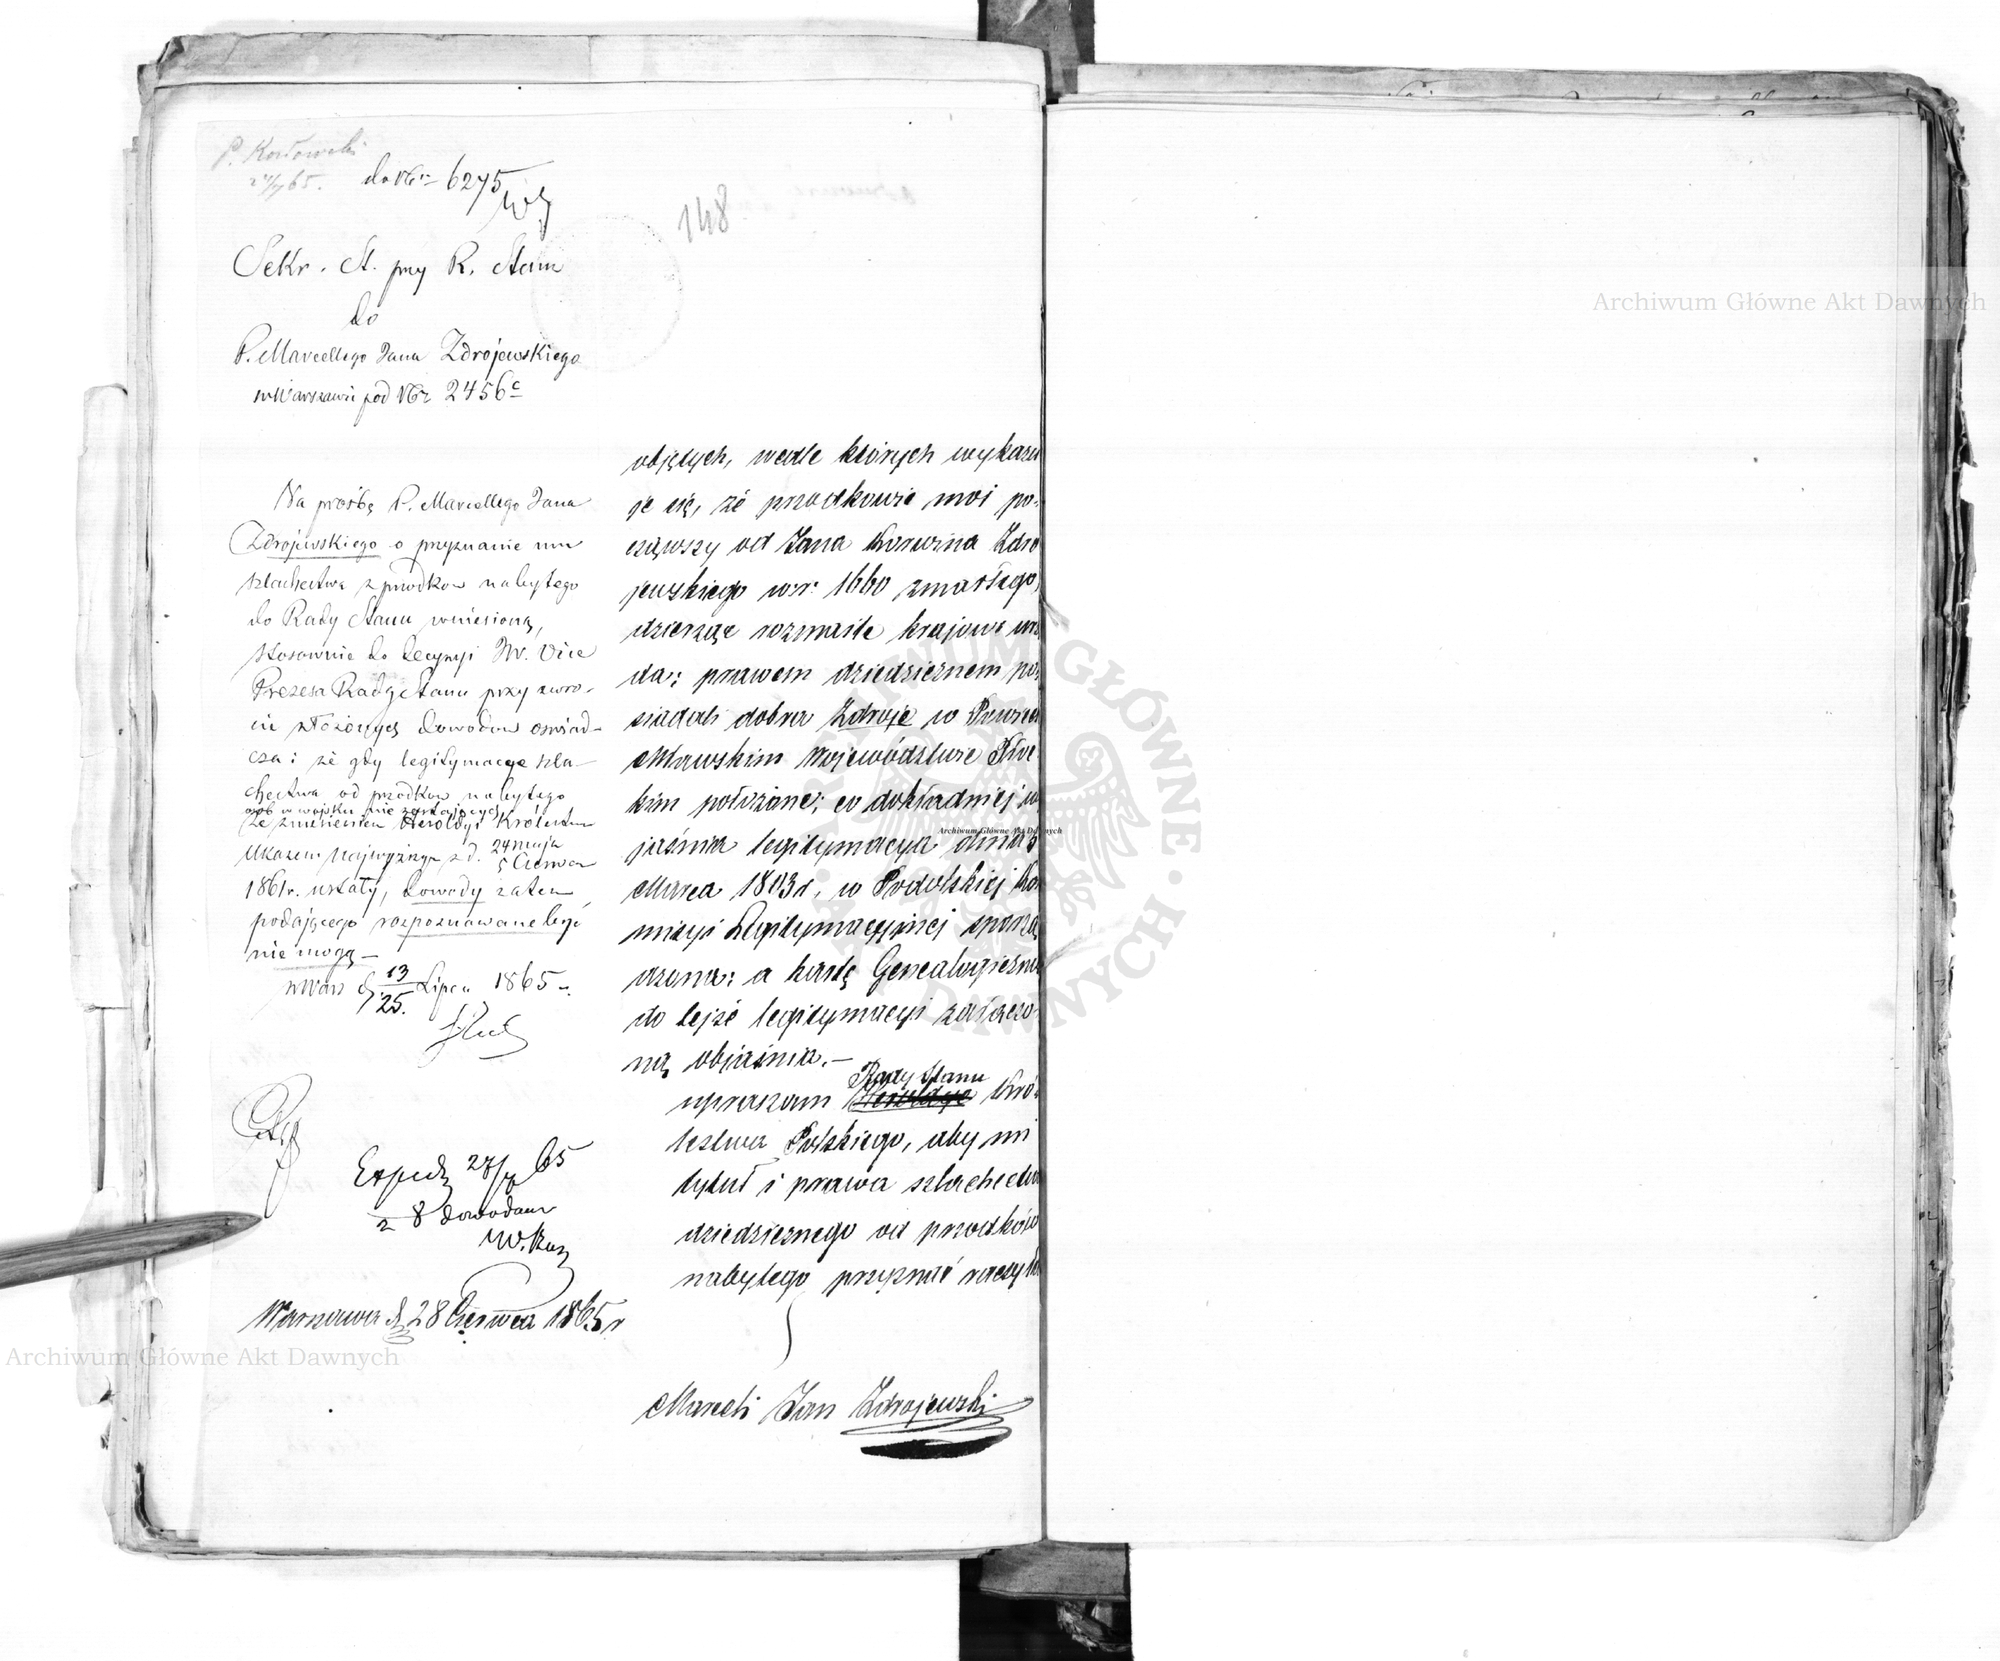 P. Kozłowski
do Nr 6275
148
Sekr. St. przy R. Stanu
do
P. Marcellego Jana Zdrojewskiego
w Warszawie pod Nr 2456c
Na prośbę P. Marcellego Jana
Zdrojewskiego o przyznanie mu
szlachectwa z przodków nabytego
do Rady Stanu wniesioną,
stosownie do decyzyi JW. Vice
Prezesa Rady Stanu przy zwro-
cie złożonych dowodów oświad-
cza: że gdy legitymacye szla-
chectwa od przodków nabytego
osób w wojsku nie zostających
ze zniesieniem Heroldyi Królestwa
Ukazem Najwyższym z d. 24 maja
5 Czerwca
1861 r. ustały, dowody zatem
podającego rozpoznawane być
nie mogą –
w War. d. 13/25 Lipca 1865 r.
Exped. 27/7 65
z 8 dowodami
Warszawa d. 28 Czerwca 1865 r
objętych, wedle których wykazu
je się, że przodkowie moi po-
cząwszy od Jana Korwina Zdro
jewskiego w r: 1660 zmarłego,
dzierżąc rozmaite krajowe urzę
da; prawem dziedzicznem po-
siadali dobra Zdroje w Powiecie
Mławskim Województwie Płoc-
kim położone; co dokładniej wy
jaśnia legitymacya dnia 5
Marca 1803 r. w Podolskiej Ko
misyi Legitymacyjnej sporzą
dzona; a kartę Genealogiczną
do tejże legitymacyi załączo-
ną objaśnia. –
Rady Stanu
upraszam Heroldye Kró-
lestwa Polskiego, aby mi
tytuł i prawa szlachectwa
dziedzicznego od przodków
nabytego przyznać raczyła
Marceli Jan Zdrojewski
Archiwum Główne Akt Dawnych
Archiwum Główne Akt Dawnych
Archiwum Główne Akt Dawnych
ARCHIWUM GŁÓWNE AKT DAWNYCH